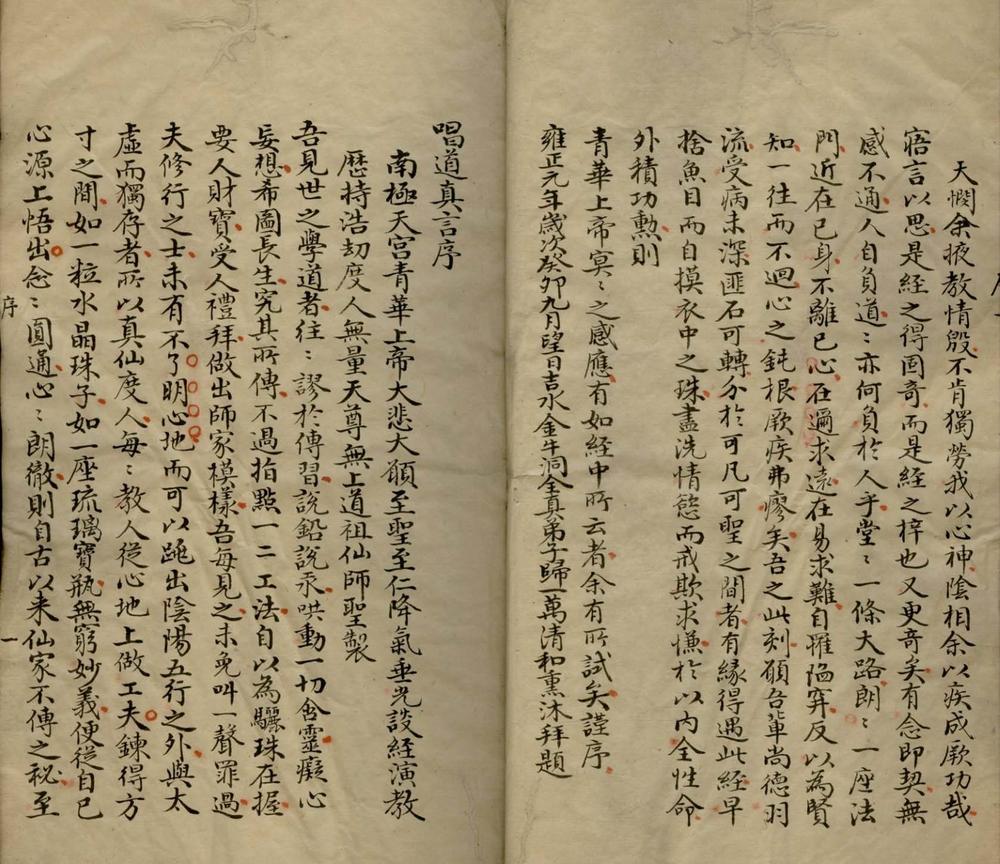 天憫余掖教情殷不肯獨勞我以心神陰相余以疾成厥功哉
寤言以思是經之得固奇而是經之梓也又更奇矣有念即契無
感不通人自負道〻亦何負於人乎堂〻一條大路朗〻一座法
門近在已身不離已心在邇求遠在易求難自罹陷穽反以為賢
知一往而不迴心之鈍根厥疾弗瘳矣吾之此刻願吾輩尚德羽
流受病未深匪石可轉分於可凡可聖之間者有緣得遇此經早
捨魚目而自摸衣中之珠盡洗情慾而戒欺求慊於以內全性命
外積功勲則
青華上帝寞〻之感應有如經中所云者余有所試矣謹序
雍正元年歲次癸卯九月望日吉水金牛洞全真弟子歸一萬清和熏沐拜題
唱道真言序
南極天宮青華上帝大悲大願至聖至仁降氣垂光談經演教
歷持浩刼度人無量天尊無上道祖仙師聖製
吾見世之學道者往〻謬於傳習說鉛說汞哄動一切含靈癡心
妄想希圖長生究其所傳不過指點一二工法自以為驪珠在握
要人財寶受人禮拜做出師家模樣吾每見之未免叫一聲罪過
夫修行之士未有不了明心地而可以跳出陰陽五行之外與太
虛而獨存者所以真仙度人每〻教人從心地上做工夫鍊得方
寸之間如一粒水晶珠子如一座琉璃寶瓶無窮妙義便從自已
心源上悟出念〻圓通心〻朗徹則自古以來仙家不傳之秘至
序
一